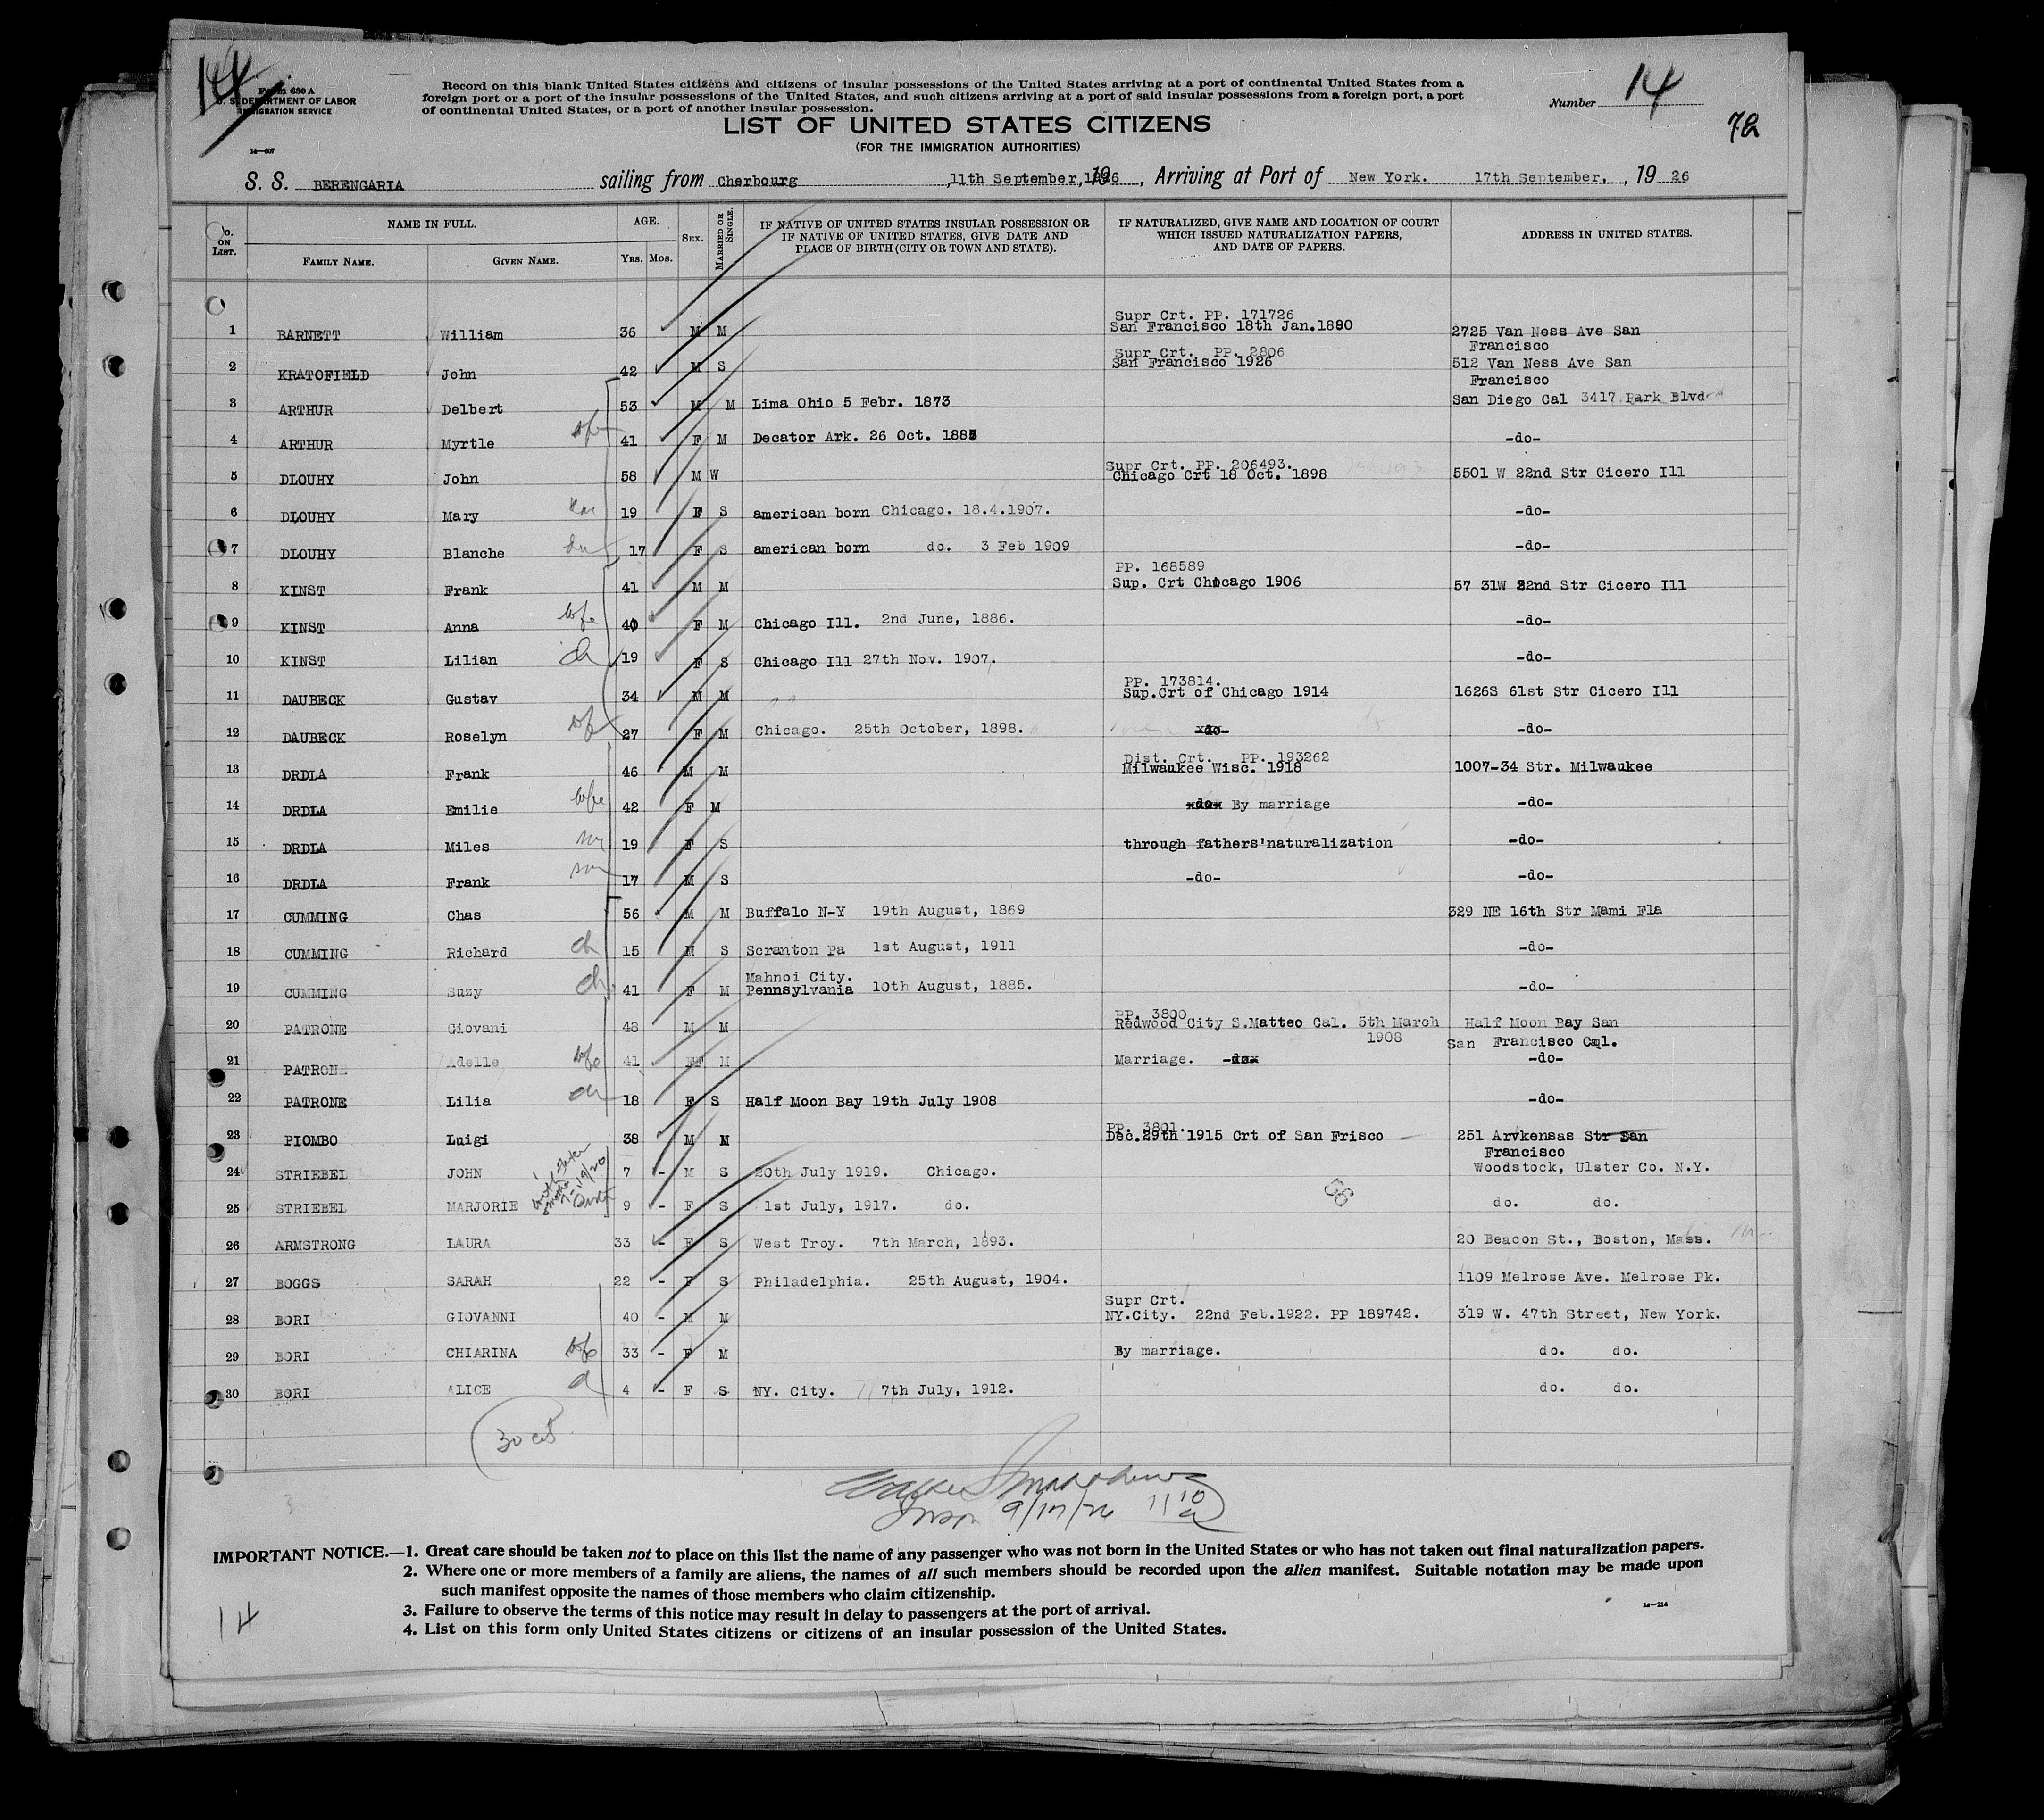 14
Form 630 A
U. S. DEPARTMENT OF LABOR
IMMIGRATION SERVICE
14—607
Record on this blank United States citizens and citizens of insular possessions of the United States arriving at a port of continental United States from a
foreign port or a port of the insular possessions of the United States, and such citizens arriving at a port of said insular possessions from a foreign port, a port
of continental United States, or a port of another insular possession.
Number 14
72
LIST OF UNITED STATES CITIZENS
(FOR THE IMMIGRATION AUTHORITIES)
S. S. BERENGARIA sailing from Cherbourg ,11th September, 1926 , Arriving at Port of New York. 17th September. , 19 26
No. ON LIST. NAME IN FULL. FAMILY NAME. GIVEN NAME. AGE. Yrs. Mos. SEX. MARRIED OR SINGLE. IF NATIVE OF UNITED STATES INSULAR POSSESSION OR IF NATIVE OF UNITED STATES, GIVE DATE AND PLACE OF BIRTH (CITY OR TOWN AND STATE). IF NATURALIZED, GIVE NAME AND LOCATION OF COURT WHICH ISSUED NATURALIZATION PAPERS, AND DATE OF PAPERS. ADDRESS IN UNITED STATES.
1 BARNETT William 36 M M Supr Crt. PP. 171726 San Francisco 18th Jan.1890 2725 Van Ness Ave San Francisco
2 KRATOFIELD John 42 M S Supr Crt. PP. 2806 San Francisco 1926 512 Van Ness Ave San Francisco
3 ARTHUR Delbert 53 M M Lima Ohio 5 Febr. 1873 San Diego Cal 3417 Park Blvd
4 ARTHUR Myrtle wfe 41 F M Decator Ark. 26 Oct. 1885 -do-
5 DLOUHY John 58 M W Supr Crt. PP. 206493. Chicago Crt 18 Oct. 1898 5501 W 22nd Str Cicero Ill
6 DLOUHY Mary 19 F S american born Chicago. 18.4.1907. -do-
7 DLOUHY Blanche 17 F S american born do. 3 Feb 1909 -do-
8 KINST Frank 41 M M PP. 168589 Sup. Crt Chicago 1906 57 31W 22nd Str Cicero Ill
9 KINST Anna wfe 40 F M Chicago Ill. 2nd June, 1886. -do-
10 KINST Lilian ch 19 F S Chicago Ill 27th Nov. 1907. -do-
11 DAUBECK Gustav 34 M M PP. 173814. Sup.Crt of Chicago 1914 1626S 61st Str Cicero Ill
12 DAUBECK Roselyn wf 27 F M Chicago. 25th October, 1898. -do- -do-
13 DRDLA Frank 46 M M Dist. Crt. PP. 193262 Milwaukee Wisc. 1918 1007-34 Str. Milwaukee
14 DRDLA Emilie wfe 42 F M xdox By marriage -do-
15 DRDLA Miles 19 F S through fathers'naturalization -do-
16 DRDLA Frank son 17 M S -do- -do-
17 CUMMING Chas 56 M M Buffalo N-Y 19th August, 1869 329 NE 16th Str Mami Fla
18 CUMMING Richard ch 15 M S Scranton Pa 1st August, 1911 -do-
19 CUMMING Suzy ch 41 F M Mahnoi City. Pennsylvania 10th August, 1885. -do-
20 PATRONE Giovani 48 M M PP. 3800 Redwood City S.Matteo Cal. 5th March 1908 Half Moon Bay San San Francisco Cal.
21 PATRONE Adelle wfe 41 FF M Marriage. -dox -do-
22 PATRONE Lilia ch 18 F S Half Moon Bay 19th July 1908 -do-
23 PIOMBO Luigi 38 M M PP. 3801. Dec.29th 1915 Crt of San Frisco 251 Arvkensas Str San Francisco
24 STRIEBEL JOHN 7 - M S 20th July 1919. Chicago. Woodstock, Ulster Co. N.Y.
25 STRIEBEL MARJORIE 9 - F S 1st July, 1917. do. do. do.
26 ARMSTRONG LAURA 33 - F S West Troy. 7th March, 1893. 20 Beacon St., Boston, Mass.
27 BOGGS SARAH 22 - F S Philadelphia. 25th August, 1904. 1109 Melrose Ave. Melrose Pk.
28 BORI GIOVANNI 40 - M M Supr Crt. NY.City. 22nd Feb.1922. PP 189742. 319 W. 47th Street, New York.
29 BORI CHIARINA wfe 33 - F M By marriage. do. do.
30 BORI ALICE 4 - F S NY. City. 7th July, 1912. do. do.
30 cit
9/17/26 11 10 a
IMPORTANT NOTICE.—1. Great care should be taken not to place on this list the name of any passenger who was not born in the United States or who has not taken out final naturalization papers.
2. Where one or more members of a family are aliens, the names of all such members should be recorded upon the alien manifest. Suitable notation may be made upon
such manifest opposite the names of those members who claim citizenship.
3. Failure to observe the terms of this notice may result in delay to passengers at the port of arrival.
4. List on this form only United States citizens or citizens of an insular possession of the United States.
14—214
14